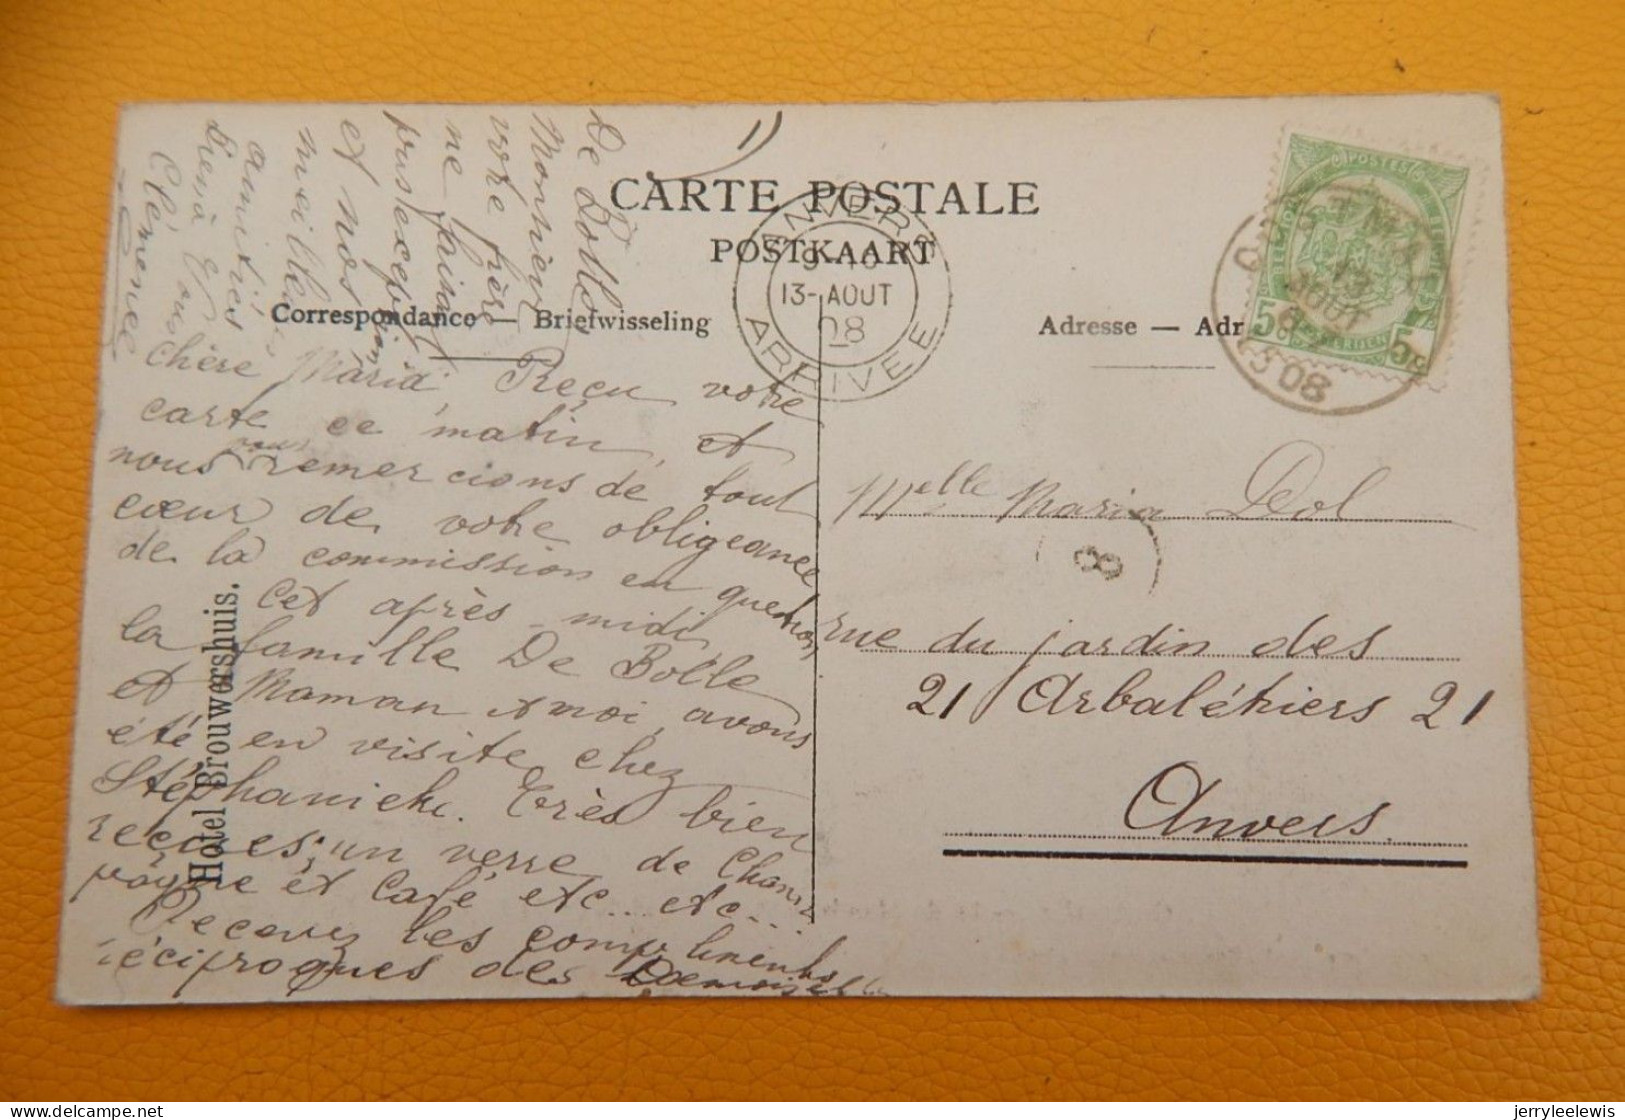 CARTE POSTALE
POSTKAART
Correspondance — Briefwisseling
Adresse — Adr
ANVERS
9-10
13-AOUT
08
ARRIVEE
13
AOUT
5-08
POSTES
5 5
Hotel Brouwershuis.
Chère Maria, Reçu votre
carte ce matin, et
nous vous remercions de tout
cœur de votre obligeance
de la commission en question,
Cet après-midi,
la famille De Bolle
et Maman et moi, avons
été en visite chez
Stéphanieke. Très bien
reçues; un verre de Cham-
pagne et Café etc.. etc...
Recevez les compliments
réciproques des Demoiselles
De Bolle,
Monsieur
votre frère
ne faisant
pas exception
et nos
meilleures
amitiés
à Vous
Clémence
Melle Maria Dol
8
rue du jardin des
21 Arbalétriers 21
Anvers.
jerryleelewis